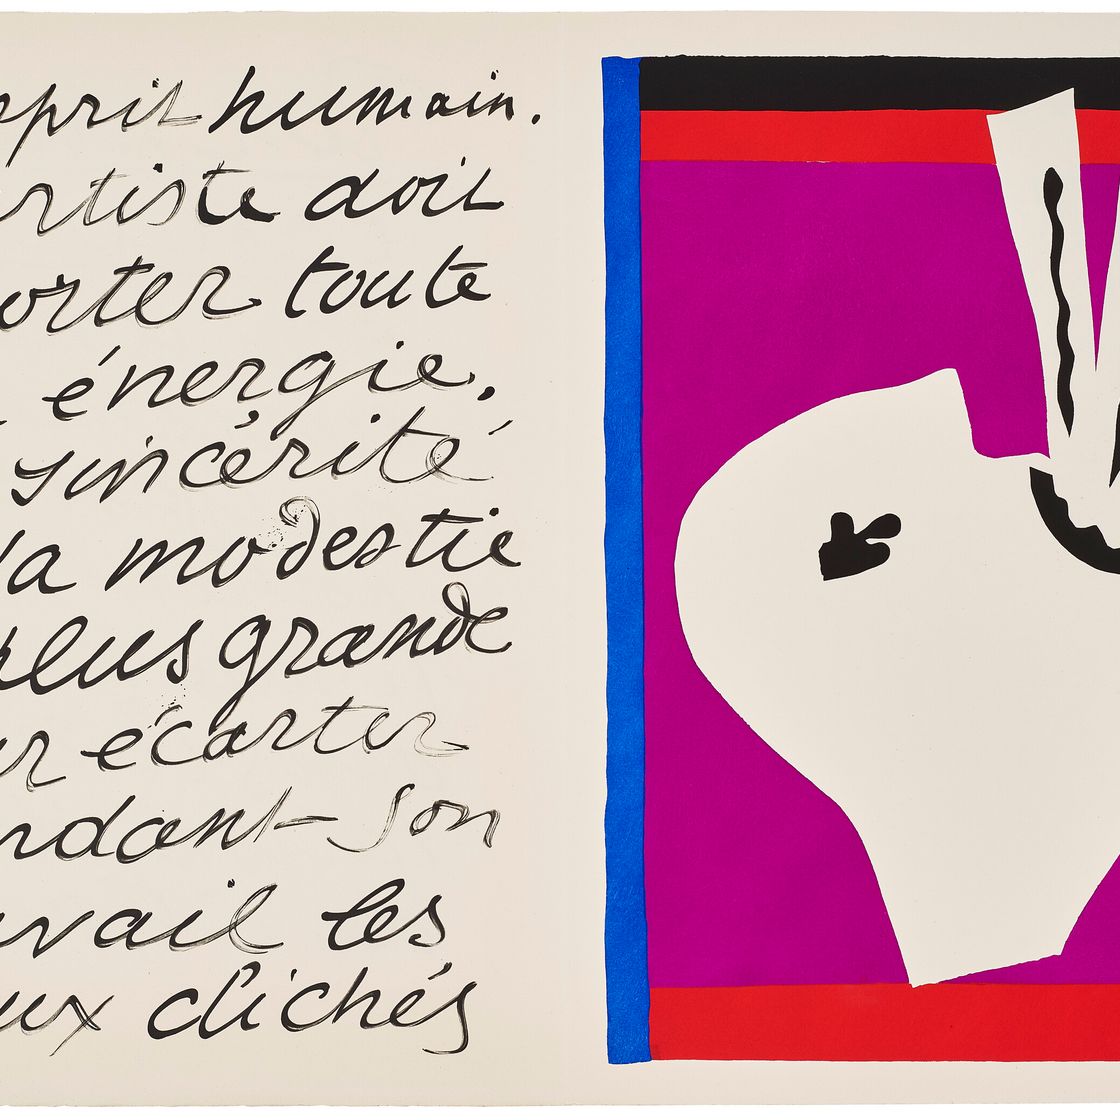 sprit humain.
rtiste doit
orter toute
énergie,
sincérité
la modestie
plus grande
ur écarter
ndant son
avail les
ux clichés